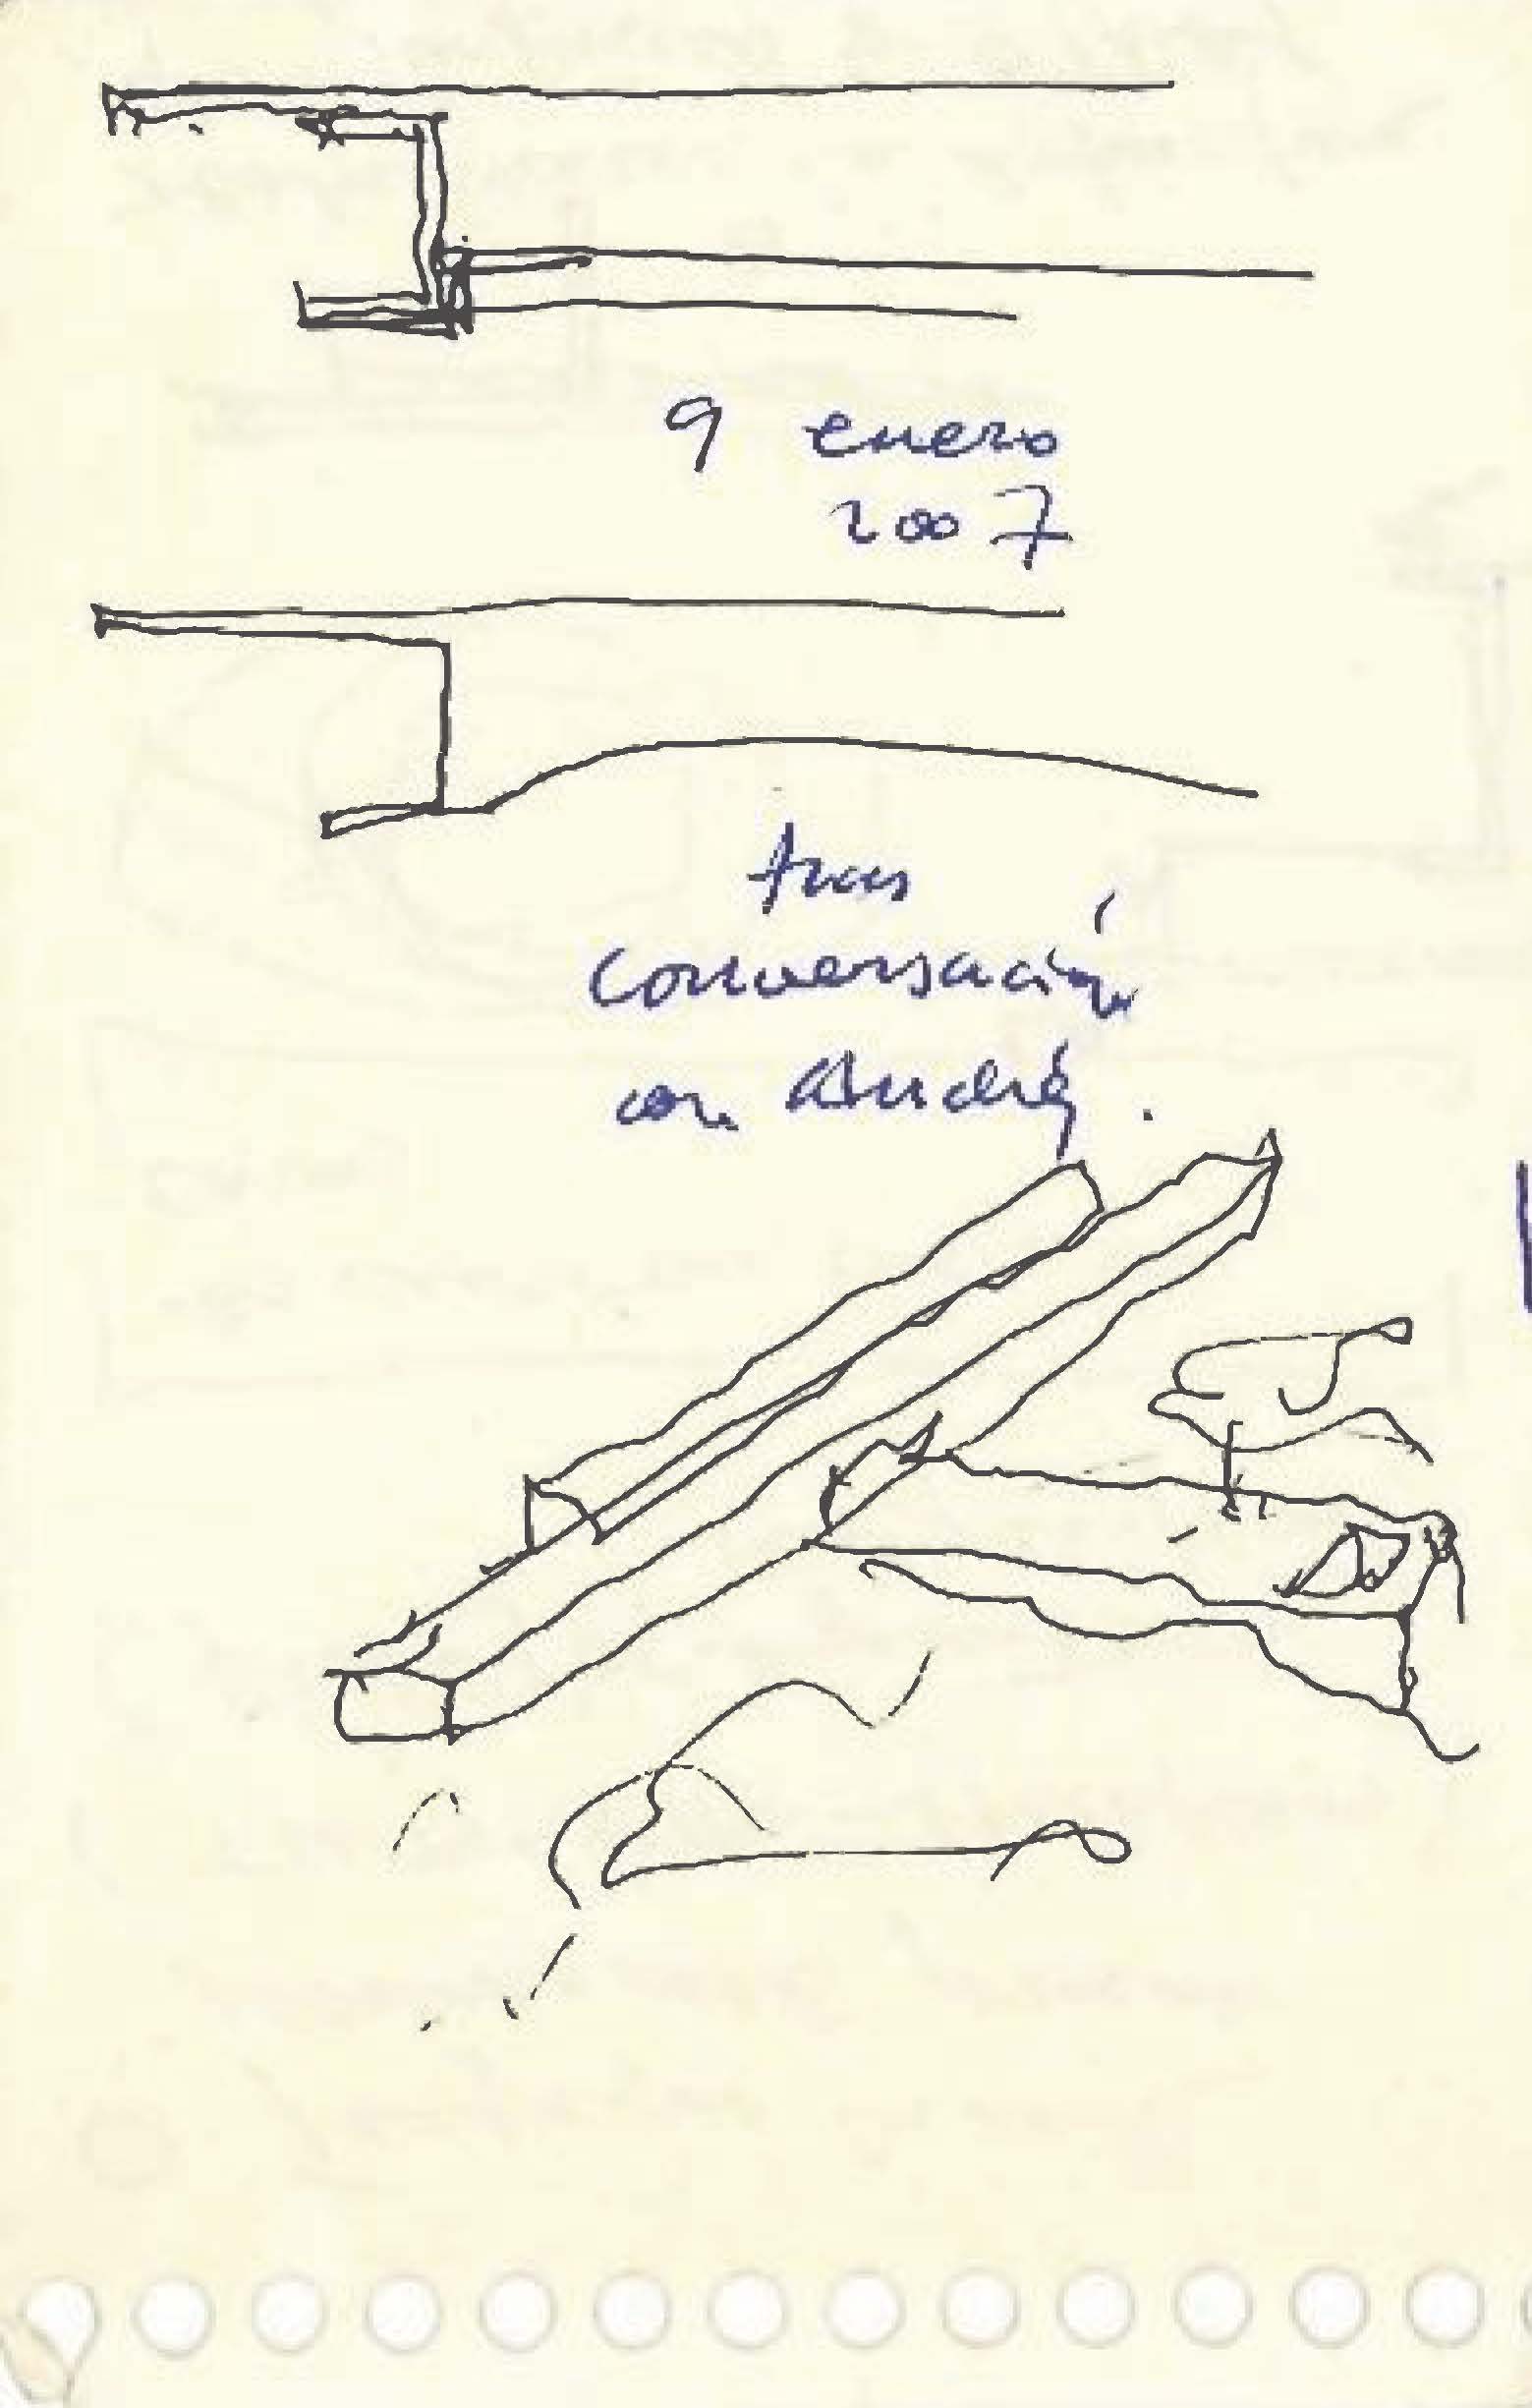 9 enero
2007
tras
conversación
con André.